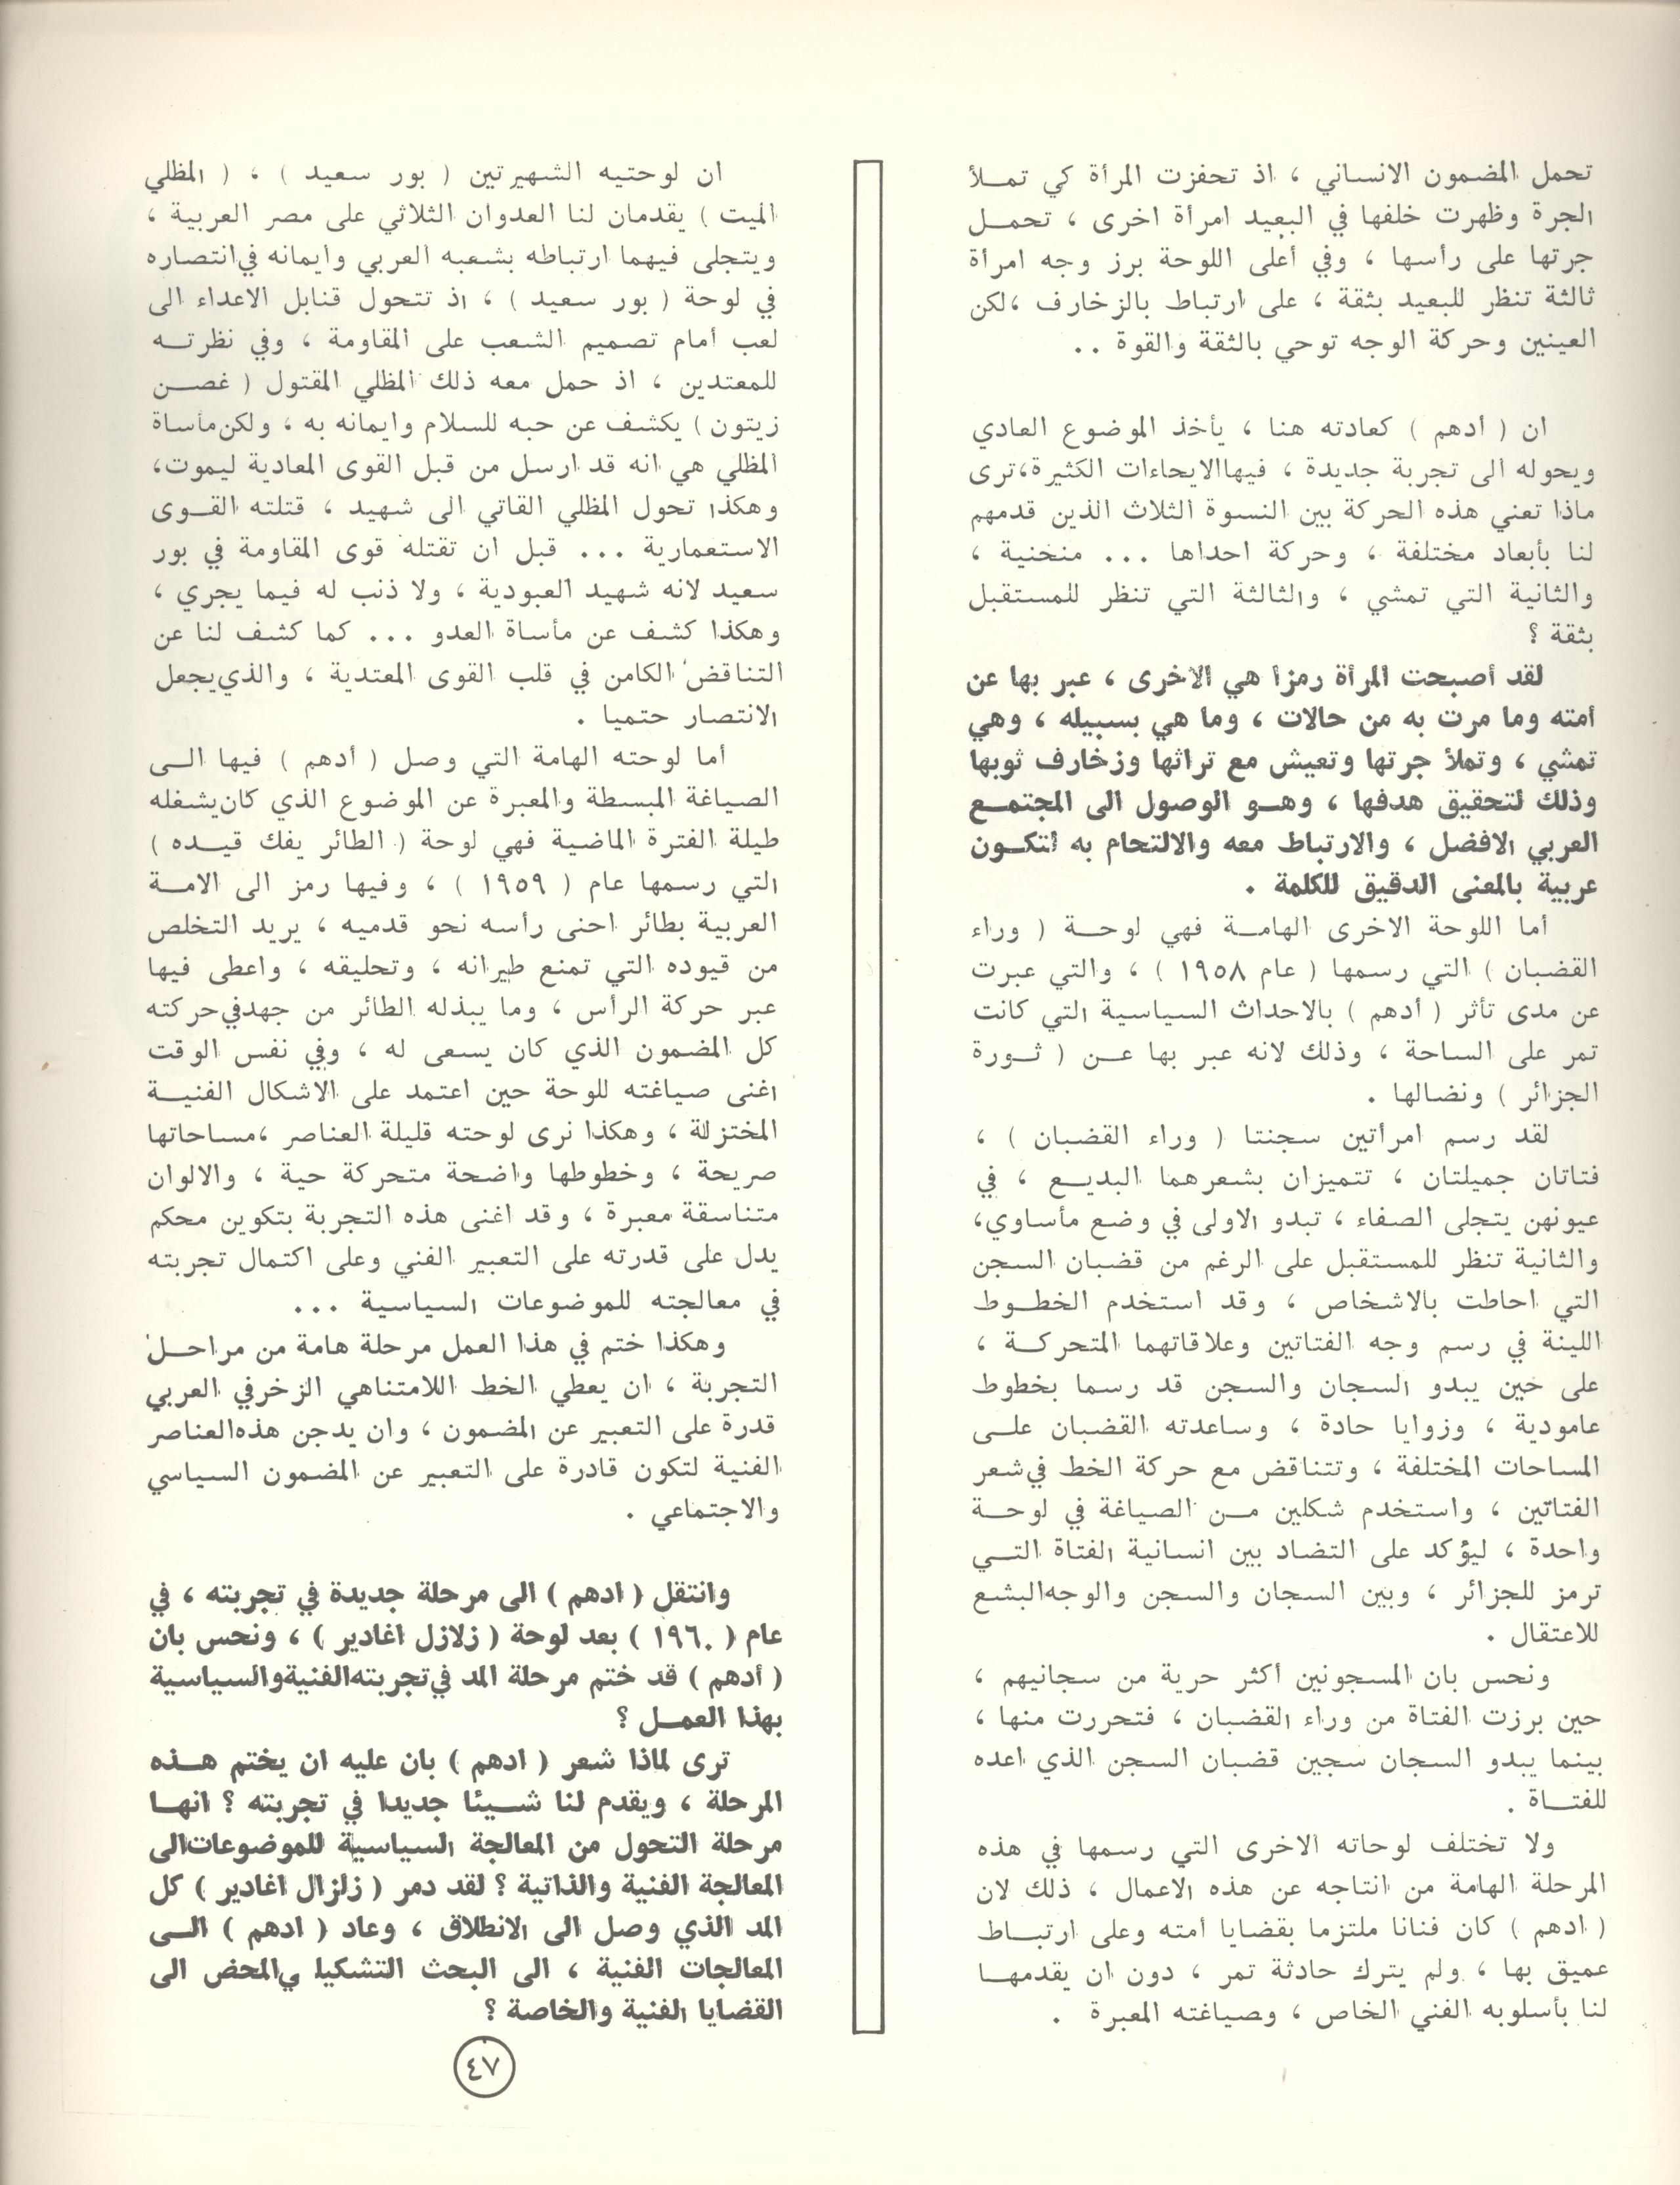 تحمل المضمون الانساني ، اذ تحفزت المرأة كي تمـلأ
الجرة وظهرت خلفها في البعيد امرأة اخرى ، تحمـل
جرتها على رأسها ، وفي أعلى اللوحة برز وجه امرأة
ثالثة تنظر للبعيد بثقة ، على ارتباط بالزخارف ،لكن
العينين وحركة الوجه توحي بالثقة والقوة . .
ان ( أدهم ) كعادته هنا ، يأخذ الموضوع العادي
ويحوله الى تجربة جديدة ، فيهاالايحاءات الكثيرة،ترى
ماذا تعني هذه الحركة بين النسوة الثلاث الذين قدمهم
لنا بأبعاد مختلفة ، وحركة احداها ... منحنية ،
والثانية التي تمشي ، والثالثة التي تنظر للمستقبل
بثقة ؟
لقد أصبحت المرأة رمزا هي الاخرى ، عبر بها عن
امته وما مرت به من حالات ، وما هي بسبيله ، وهي
تمشي ، وتملأ جرتها وتعيش مع تراثها وزخارف ثوبها
وذلك لتحقيق هدفها ، وهـو الوصول الى المجتمـع
العربي الافضل ، والارتباط معه والالتحام به لتكـون
عربية بالمعنى الدقيق للكلمة .
أما اللوحة الاخرى الهامـة فهي لوحـة ( وراء
القضبان ) التي رسمها ( عام ١٩٥٨ ) ، والتي عبرت
عن مدى تأثر ( أدهم ) بالاحداث السياسية التي كانت
تمر على الساحة ، وذلك لانه عبر بها عـن ( ثـورة
الجزائر ) ونضالها .
لقد رسم امرأتين سجنتا ( وراء القضبان ) ،
فتاتان جميلتان ، تتميزان بشعرهما البديـع ، في
عيونهن يتجلى الصفاء ، تبدو الاولى في وضع مأساوي،
والثانية تنظر للمستقبل على الرغم من قضبان السجن
التي احاطت بالاشخاص ، وقد استخدم الخطـوط
اللينة في رسم وجه الفتاتين وعلاقاتهما المتحركـة ،
على حين يبدو السجان والسجن قد رسما بخطوط
عامودية ، وزوايا حادة ، وساعدته القضبان علـى
المساحات المختلفة ، وتتناقض مع حركة الخط في شعر
الفتاتين ، واستخدم شكلين مـن الصياغة في لوحـة
واحدة ، ليؤكد على التضاد بين انسانية الفتاة التـي
ترمز للجزائر ، وبين السجان والسجن والوجه البشع
للاعتقال .
ونحس بان المسجونين أكثر حرية من سجانيهم ،
حين برزت الفتاة من وراء القضبان ، فتحررت منها ،
بينما يبدو السجان سجين قضبان السجن الذي اعده
للفتـاة .
ولا تختلف لوحاته الاخرى التي رسمها في هذه
المرحلة الهامة من انتاجه عن هذه الاعمال ، ذلك لان
( ادهم ) كان فنانا ملتزما بقضايا امته وعلى ارتبـاط
عميق بها ، ولم يترك حادثة تمر ، دون ان يقدمهـا
لنا بأسلوبه الفني الخاص ، وصياغته المعبرة .
ان لوحتيه الشهيرتين ( بور سعيد ) ، ( المظلي
الميت ) يقدمان لنا العدوان الثلاثي على مصر العربية ،
ويتجلى فيهما ارتباطه بشعبه العربي وايمانه في انتصاره
في لوحة ( بور سعيد ) ، اذ تتحول قنابل الاعداء الى
لعب أمام تصميم الشعب على المقاومة ، وفي نظرتـه
للمعتدين ، اذ حمل معه ذلك المظلي المقتول ( غصـن
زيتون ) يكشف عن حبه للسلام وايمانه به ، ولكن مأساة
المظلي هي انه قد ارسل من قبل القوى المعادية ليموت،
وهكذا تحول المظلي القاتي الى شهيد ، قتلته القـوى
الاستعمارية ... قبل ان تقتله قوى المقاومة في بور
سعيد لانه شهيد العبودية ، ولا ذنب له فيما يجري ،
وهكذا كشف عن مأساة العدو ... كما كشف لنا عن
التناقض الكامن في قلب القوى المعتدية ، والذي يجعل
الانتصار حتميا .
أما لوحته الهامة التي وصل ( أدهم ) فيها الـى
الصياغة المبسطة والمعبرة عن الموضوع الذي كان يشغله
طيلة الفترة الماضية فهي لوحة ( الطائر يفك قيـده )
التي رسمها عام ( ١٩٥٩ ) ، وفيها رمز الى الامـة
العربية بطائر احنى رأسه نحو قدميه ، يريد التخلص
من قيوده التي تمنع طيرانه ، وتحليقه ، واعطى فيها
عبر حركة الرأس ، وما يبذله الطائر من جهد في حركته
كل المضمون الذي كان يسعى له ، وفي نفس الوقت
اغنى صياغته للوحة حين اعتمد على الاشكال الفنيـة
المختزلة ، وهكذا نرى لوحته قليلة العناصر ،مساحاتها
صريحة ، وخطوطها واضحة متحركة حية ، والالوان
متناسقة معبرة ، وقد اغنى هذه التجربة بتكوين محكم
يدل على قدرته على التعبير الفني وعلى اكتمال تجربته
في معالجته للموضوعات السياسية ...
وهكذا ختم في هذا العمل مرحلة هامة من مراحـل
التجربة ، ان يعطي الخط اللامتناهي الزخرفي العربي
قدرة على التعبير عن المضمون ، وان يدجن هذه العناصر
الفنية لتكون قادرة على التعبير عن المضمون السياسي
والاجتماعي .
وانتقل ( ادهم ) الى مرحلة جديدة في تجربته ، في
عام ( ١٩٦٠ ) بعد لوحة ( زلازل اغادير ) ، ونحس بان
( أدهم ) قد ختم مرحلة المد في تجربته الفنية والسياسية
بهذا العمـل ؟
ترى لماذا شعر ( ادهم ) بان عليه ان يختم هـذه
المرحلة ، ويقدم لنا شـيئا جديدا في تجربته ؟ انهـا
مرحلة التحول من المعالجة السياسية للموضوعات الى
المعالجة الفنية والذاتية ؟ لقد دمر ( زلزال اغادير ) كل
المد الذي وصل الى الانطلاق ، وعاد ( ادهم ) الـى
المعالجات الفنية ، الى البحث التشكيلي المحض الى
القضايا الفنية والخاصة ؟
٤٧